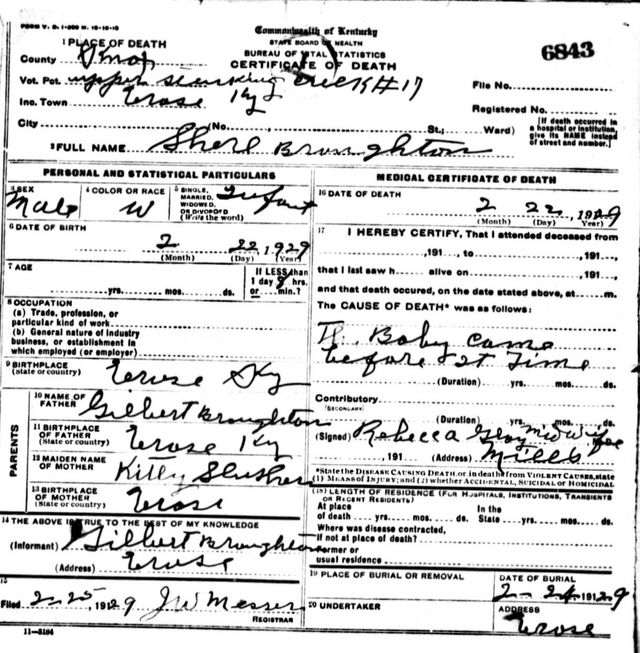 FORM V. S. 1-200 M. 10-10-10
Commonwealth of Kentucky
STATE BOARD OF HEALTH
BUREAU OF VITAL STATISTICS
CERTIFICATE OF DEATH
6843
1 PLACE OF DEATH
County Knox
Vot. Pot. upper Creek #17
Inc. Town Erose Ky
City (No. St.; Ward)
File No.
Registered No.
[If death occurred in a hospital or institution, give its NAME instead of street and number.]
2 FULL NAME Sherl Broughton
PERSONAL AND STATISTICAL PARTICULARS
3 SEX Male
4 COLOR OR RACE W
5 SINGLE, MARRIED, WIDOWED, OR DIVORCED (Write the word) Infant
6 DATE OF BIRTH
2 22, 1929
(Month) (Day) (Year)
7 AGE
yrs. mos. ds.
If LESS than 1 day 8 hrs. or min.?
8 OCCUPATION
(a) Trade, profession, or particular kind of work
(b) General nature of industry business, or establishment in which employed (or employer)
9 BIRTHPLACE (state or country) Erose Ky
PARENTS
10 NAME OF FATHER Gilbert Broughton
11 BIRTHPLACE OF FATHER (State or country) Erose Ky
12 MAIDEN NAME OF MOTHER Kitty Slusher
13 BIRTHPLACE OF MOTHER (State or country) Erose
14 THE ABOVE IS TRUE TO THE BEST OF MY KNOWLEDGE
(Informant) Gilbert Broughton
(Address) Erose
15
Filed 2-25, 1929 J W Messer
REGISTRAR
11-3184
MEDICAL CERTIFICATE OF DEATH
16 DATE OF DEATH
2 22, 1929
(Month) (Day) (Year)
17 I HEREBY CERTIFY, That I attended deceased from
, 191 , to , 191 ,
that I last saw h alive on , 191 ,
and that death occured, on the date stated above, at m.
The CAUSE OF DEATH* was as follows:
Th. Baby came
before it Time
(Duration) yrs. mos. ds.
Contributory (SECONDARY)
(Duration) yrs. mos. ds.
(Signed) Rebecca Gray Midwife
, 191 (Address) Mills
*State the DISEASE CAUSING DEATH, or, in deaths from VIOLENT CAUSES, state (1) MEANS OF INJURY; and (2) whether ACCIDENTAL, SUICIDAL OR HOMICIDAL
(18) LENGTH OF RESIDENCE (FOR HOSPITALS, INSTITUTIONS, TRANSIENTS OR RECENT RESIDENTS)
At place of death yrs. mos. ds. In the State yrs. mos. ds.
Where was disease contracted, if not at place of death?
Former or usual residence
19 PLACE OF BURIAL OR REMOVAL
DATE OF BURIAL
2-24 1929
20 UNDERTAKER
ADDRESS
Erose